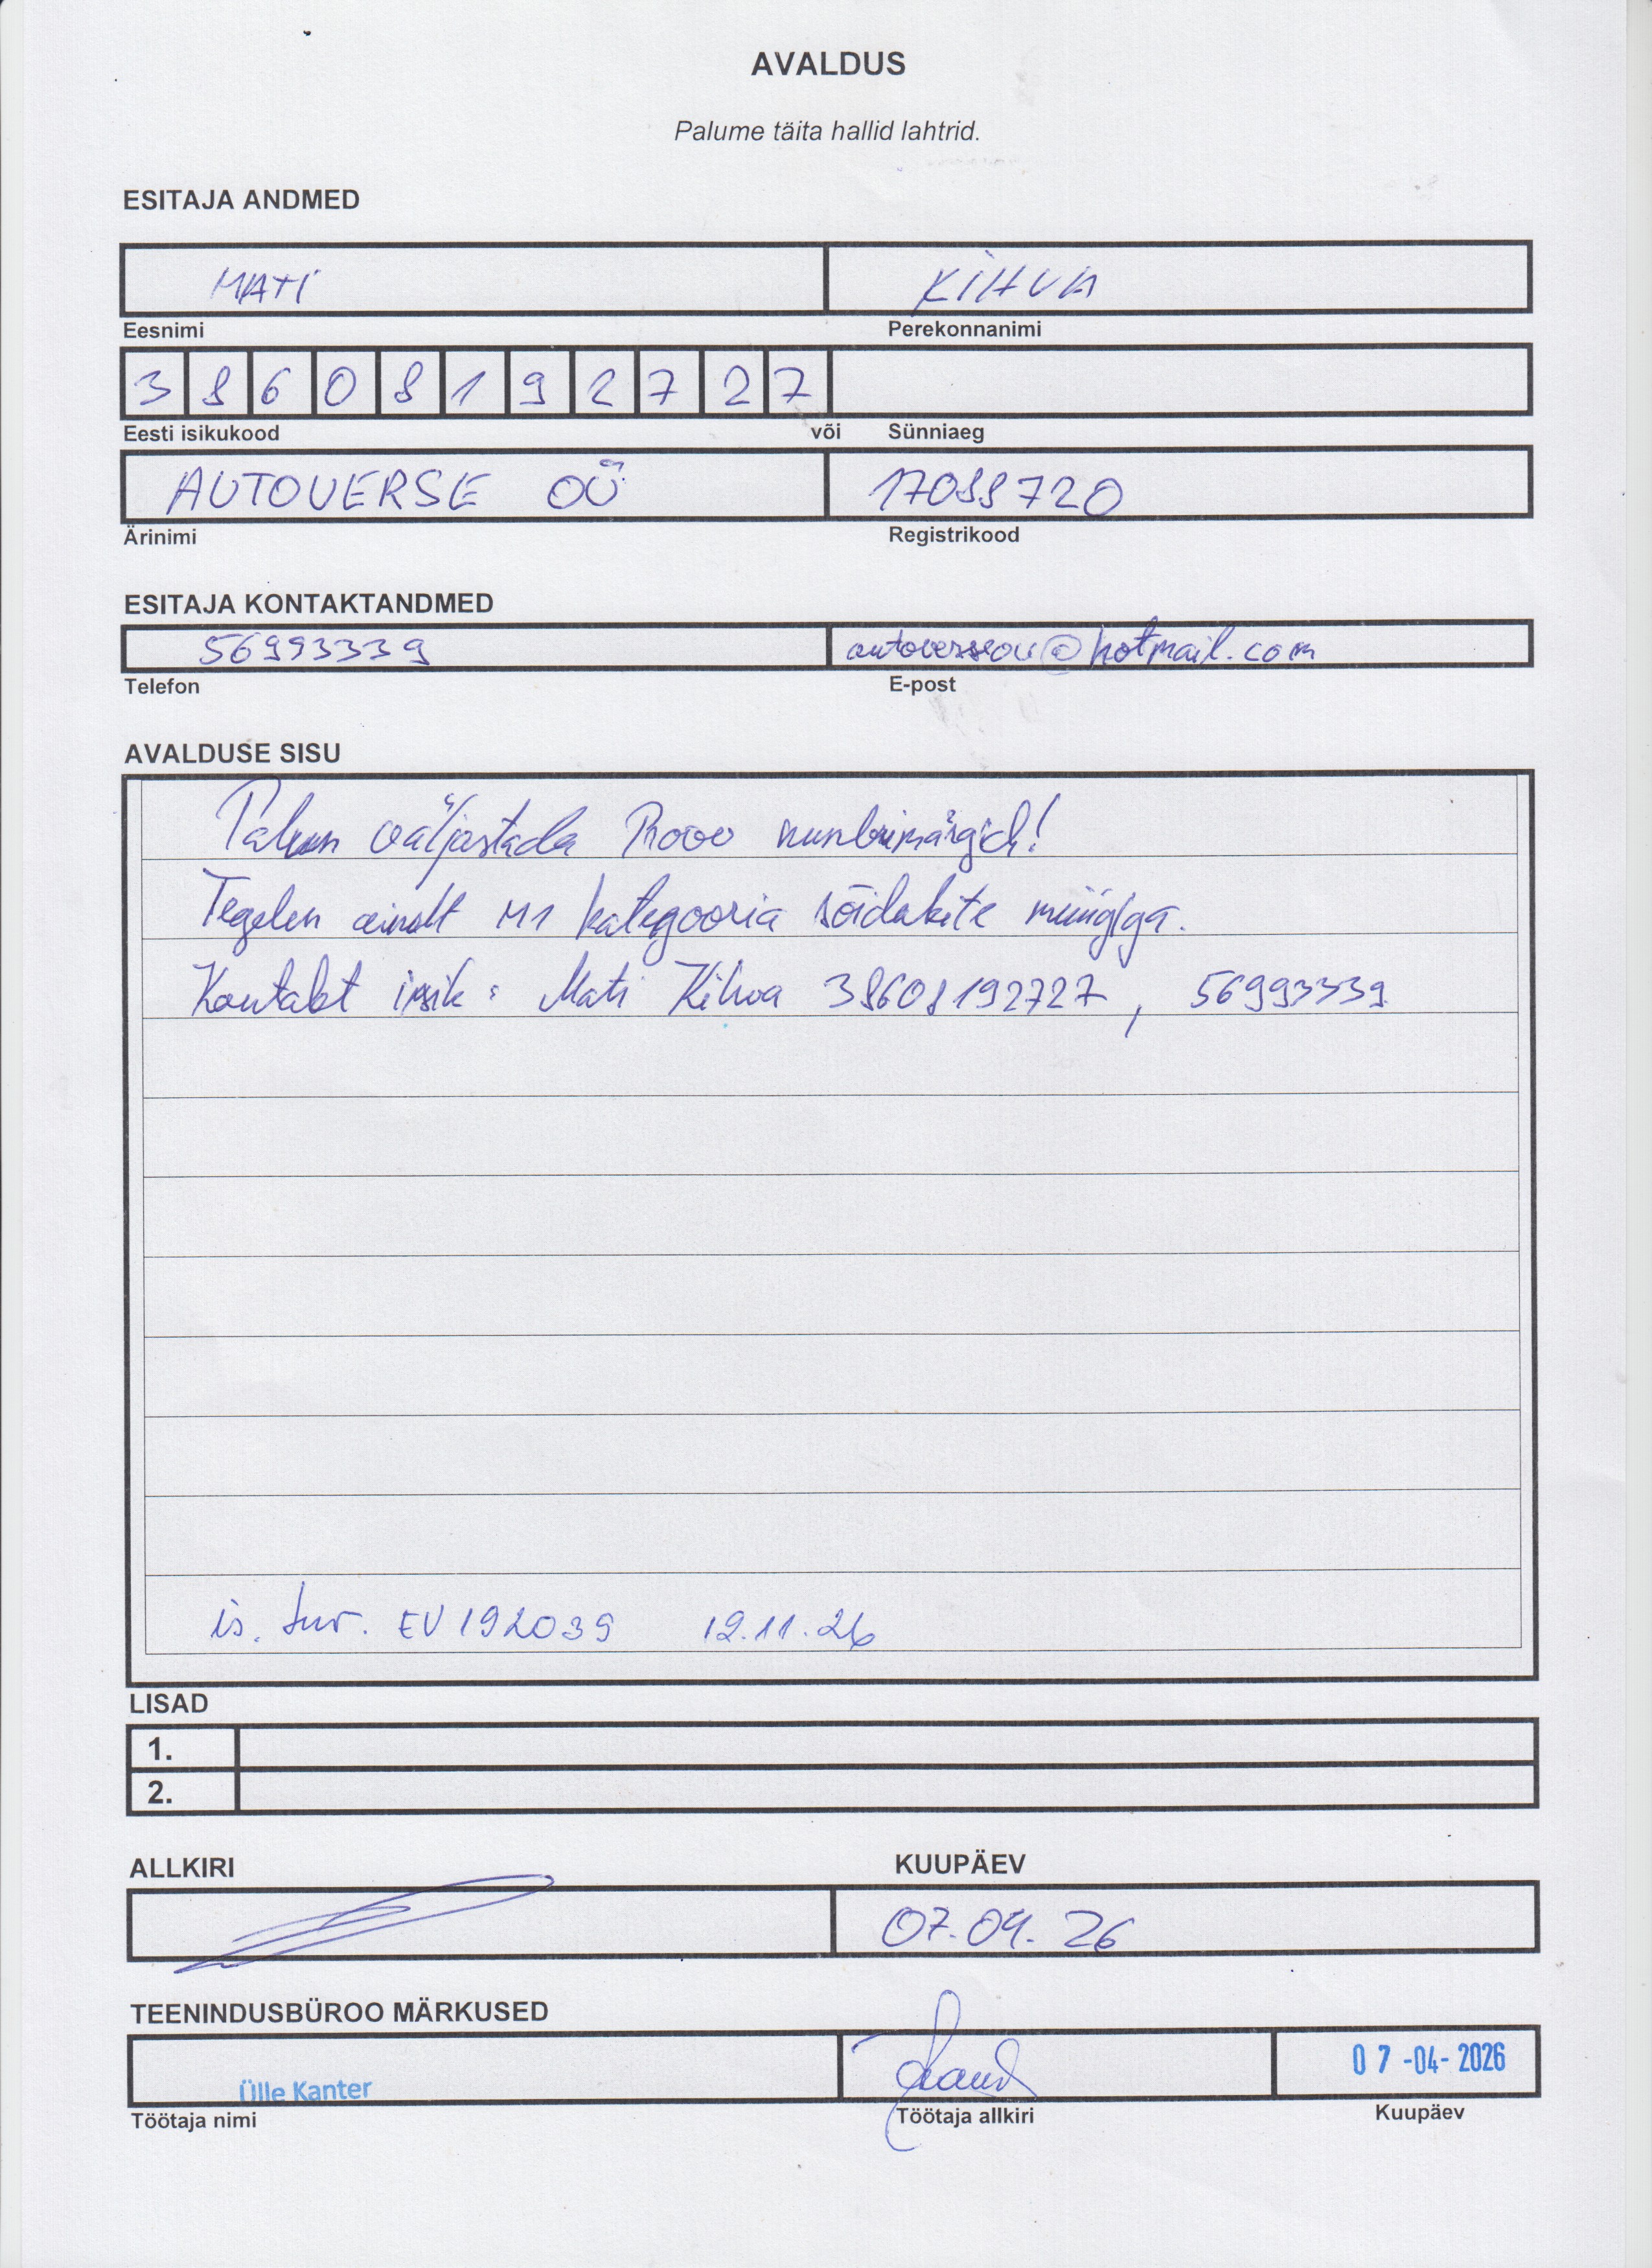 AVALDUS
Palume täita hallid lahtrid.
ESITAJA ANDMED
MATI KIHVA
Eesnimi Perekonnanimi
3 8 6 0 8 1 9 2 7 2 7
Eesti isikukood või Sünniaeg
AUTOVERSE OÜ
Ärinimi Registrikood
ESITAJA KONTAKTANDMED
56993339 autoverseou@hotmail.com
Telefon E-post
AVALDUSE SISU
Palun väljastada Proov numbrimärgid!
Tegelen ainult M1 kategooria sõidukite müügiga.
Kontakt isik: Mati Kihva 38608192727, 56993339
is. tun. EV192039 19.11.26
LISAD
1.
2.
ALLKIRI KUUPÄEV
07.04.26
TEENINDUSBÜROO MÄRKUSED
Ülle Kanter 07-04-2026
Töötaja nimi Töötaja allkiri Kuupäev